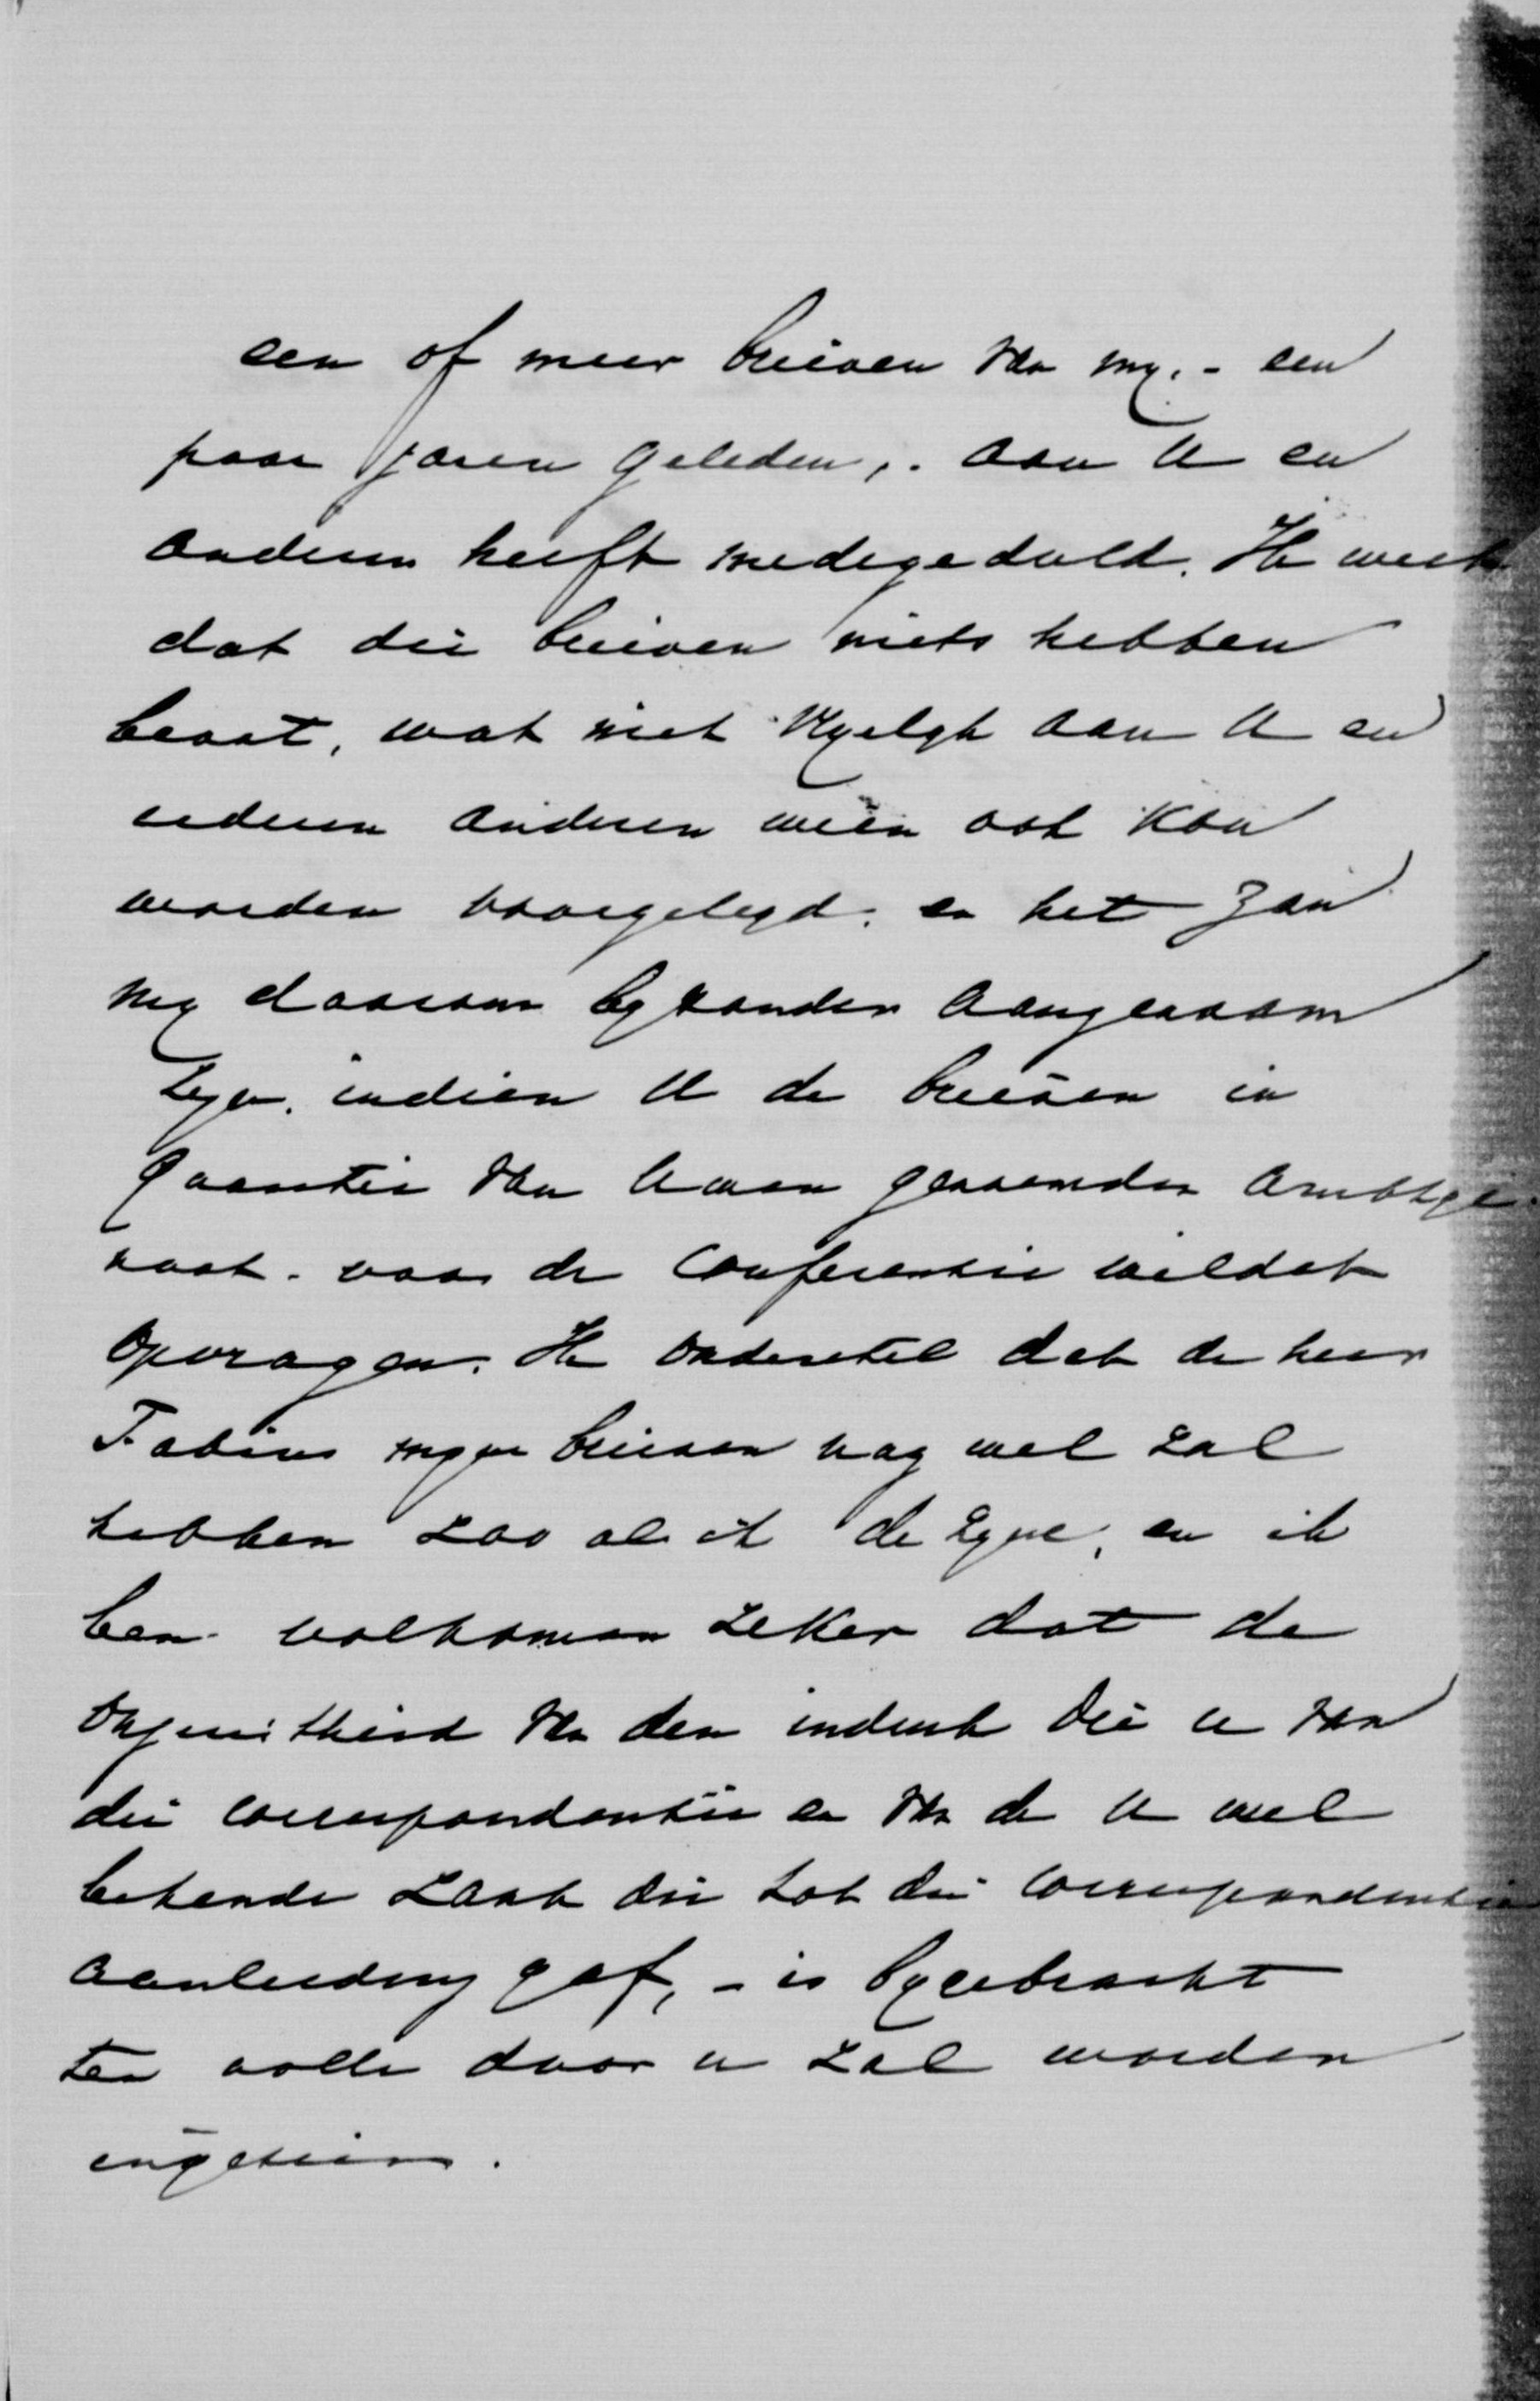 een of meer brieven van my, - een
paar jaren geleden, - aan U en
anderen heeft medegedeeld. Ik weet
dat die brieven niets hebben
bevat, wat niet veilig aan U en
iederen anderen wien ook kon
worden voorgelegd; en het zou
my daarom byzonder aangenaam
zyn, indien U de brieven in
quaestie van Uwen genoemden ambtge-
noot voor de Conferentie wildet
opvragen. Ik onderstel dat de heer
Fabius myne brieven nog wel zal
hebben zoo als ik de zyne, en ik
ben volkomen zeker dat de
onjuistheid van den indruk die U van
die correspondentie en van de U wel
bekende zaak die tot die correspondentie
aanleiding gaf, - is bygebracht
ten volle door U zal worden
ingezien.